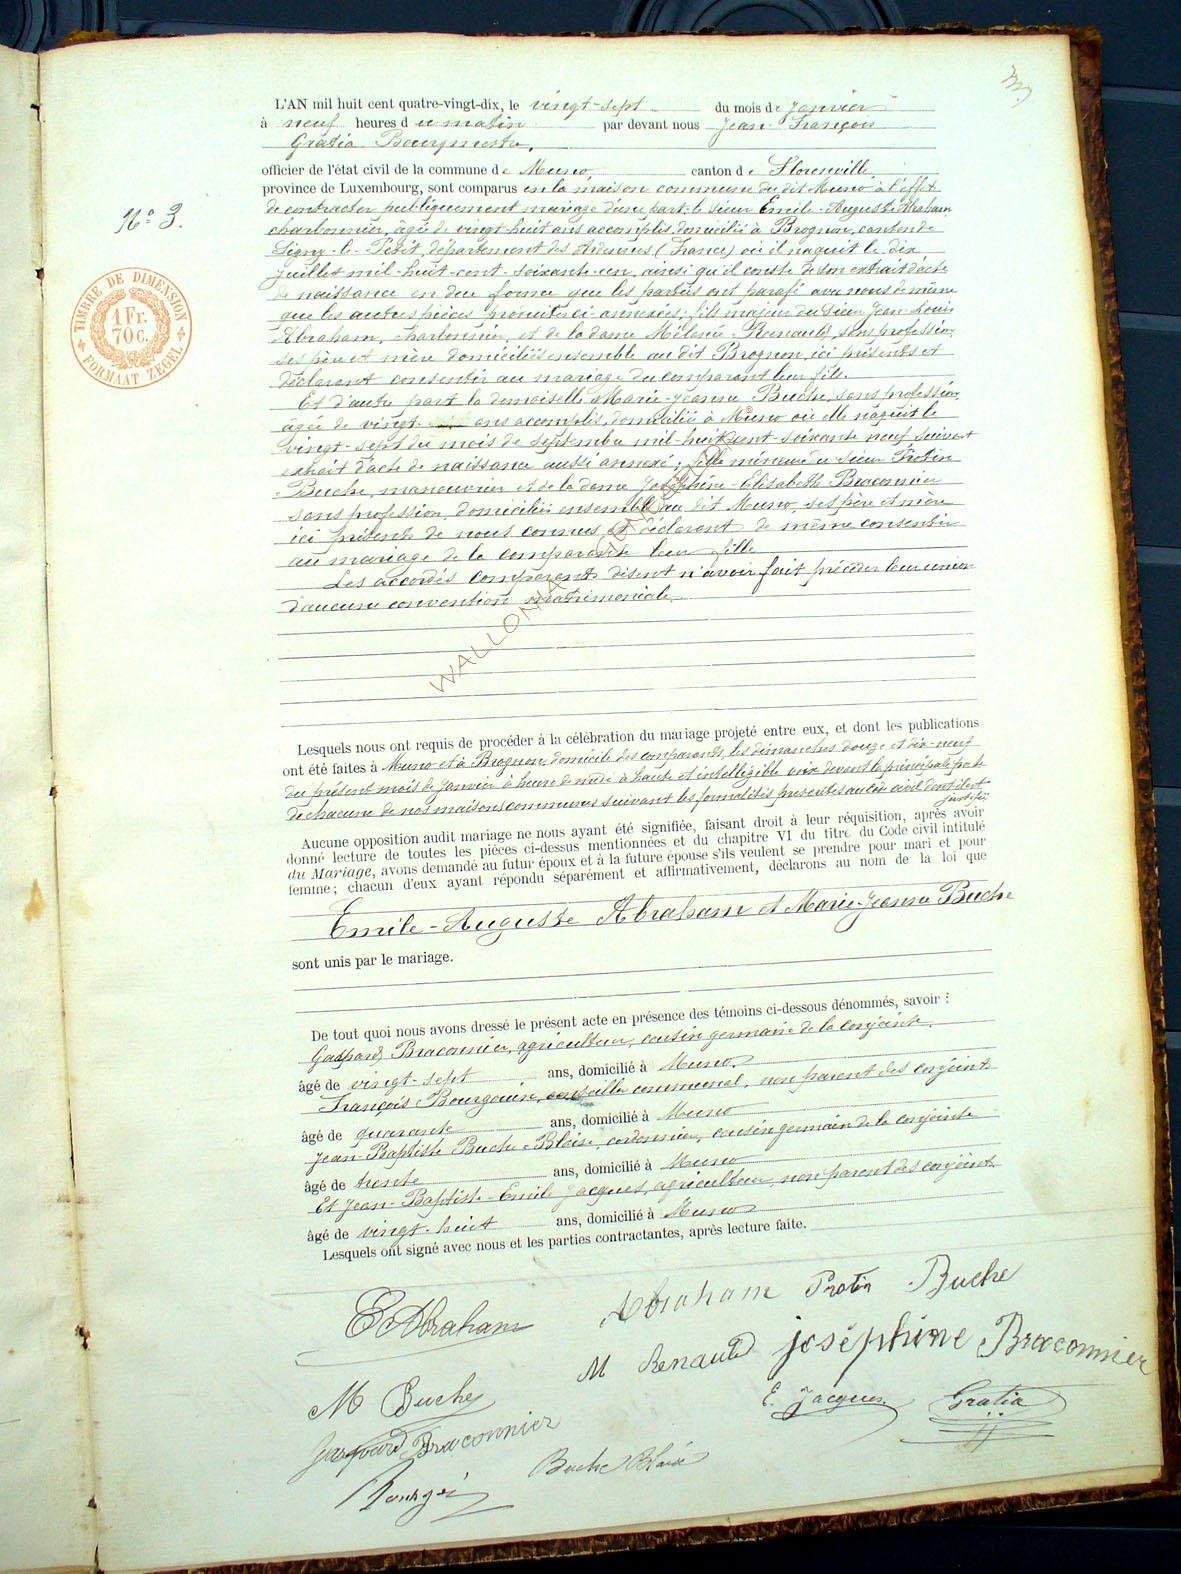 L'AN mil huit cent quatre-vingt-dix, le vingt-sept du mois de Janvier
à neuf heures du matin par devant nous Jean-François
Gratia Bourgmestre,
officier de l'état civil de la commune de Muno canton de Florenville,
province de Luxembourg, sont comparus en la maison commune du dit Muno à l'effet
de contracter publiquement mariage d'une part le sieur Emile-Auguste Abraham
charbonnier, âgé de vingt-huit ans accomplis, domicilié à Brognon, canton de
Signy-le-Petit, département des Ardennes (France) où il naquit le dix
Juillet mil-huit-cent-soixante-un, ainsi qu'il conste de son extrait d'acte
de naissance en due forme que les parties ont parafé avec nous de même
que les autres pièces produites ci-annexées; fils majeur du sieur Jean-Louis
Abraham, charbonnier, et de la dame Mélanie Renauld, sans profession
ses père et mère domiciliés ensemble au dit Brognon, ici présents et
déclarant consentir au mariage du comparant leur fils.
Et d'autre part la demoiselle Marie-Jeanne Buche, sans profession,
âgée de vingt ans accomplis, domiciliée à Muno où elle naquit le
vingt-sept du mois de septembre mil-huit-cent-soixante neuf suivant
extrait d'acte de naissance aussi annexé; fille mineure du sieur Protin
Buche, manouvrier et de la dame Joséphine-Elisabeth Braconnier
sans profession, domiciliés ensemble au dit Muno, ses père et mère
ici présents de nous connus et déclarant de même consentir
au mariage de la comparante leur fille.
Les accordés comparants disent n'avoir fait précéder leur union
d'aucune convention matrimoniale.
Lesquels nous ont requis de procéder à la célébration du mariage projeté entre eux, et dont les publications
ont été faites à Muno et à Brognon, domicile des comparants, les dimanches douze et dix-neuf
du présent mois de Janvier à heure de midi à haute et intelligible voix devant la principale porte
de chacune de nos maisons communes suivant les formalités prescrites au code civil dont il est
justifié
Aucune opposition audit mariage ne nous ayant été signifiée, faisant droit à leur réquisition, après avoir
donné lecture de toutes les pièces ci-dessus mentionnées et du chapitre VI du titre du Code civil intitulé
du Mariage, avons demandé au futur époux et à la future épouse s'ils veulent se prendre pour mari et pour
femme; chacun d'eux ayant répondu séparément et affirmativement, déclarons au nom de la loi que
Emile-Auguste Abraham et Marie-Jeanne Buche
sont unis par le mariage.
De tout quoi nous avons dressé le présent acte en présence des témoins ci-dessous dénommés, savoir :
Gaspard Braconnier, agriculteur, cousin germain de la conjointe,
âgé de vingt-sept ans, domicilié à Muno,
François Bourguin, conseiller communal, non parent des conjoints
âgé de quarante ans, domicilié à Muno
Jean-Baptiste Buche-Blaise, cordonnier, cousin germain de la conjointe
âgé de trente ans, domicilié à Muno
Et Jean-Baptiste-Emile Jacques, agriculteur, non parent des conjoints
âgé de vingt-huit ans, domicilié à Muno
Lesquels ont signé avec nous et les parties contractantes, après lecture faite.
E Abraham Abraham Protin Buche
M Renauld joséphine Braconnier
M Buche E. Jacques Gratia
gaspard Braconnier
Buche Blaise
N° 3.
TIMBRE DE DIMENSION
1 Fr.
70 c.
FORMAAT ZEGEL
WALLONIA